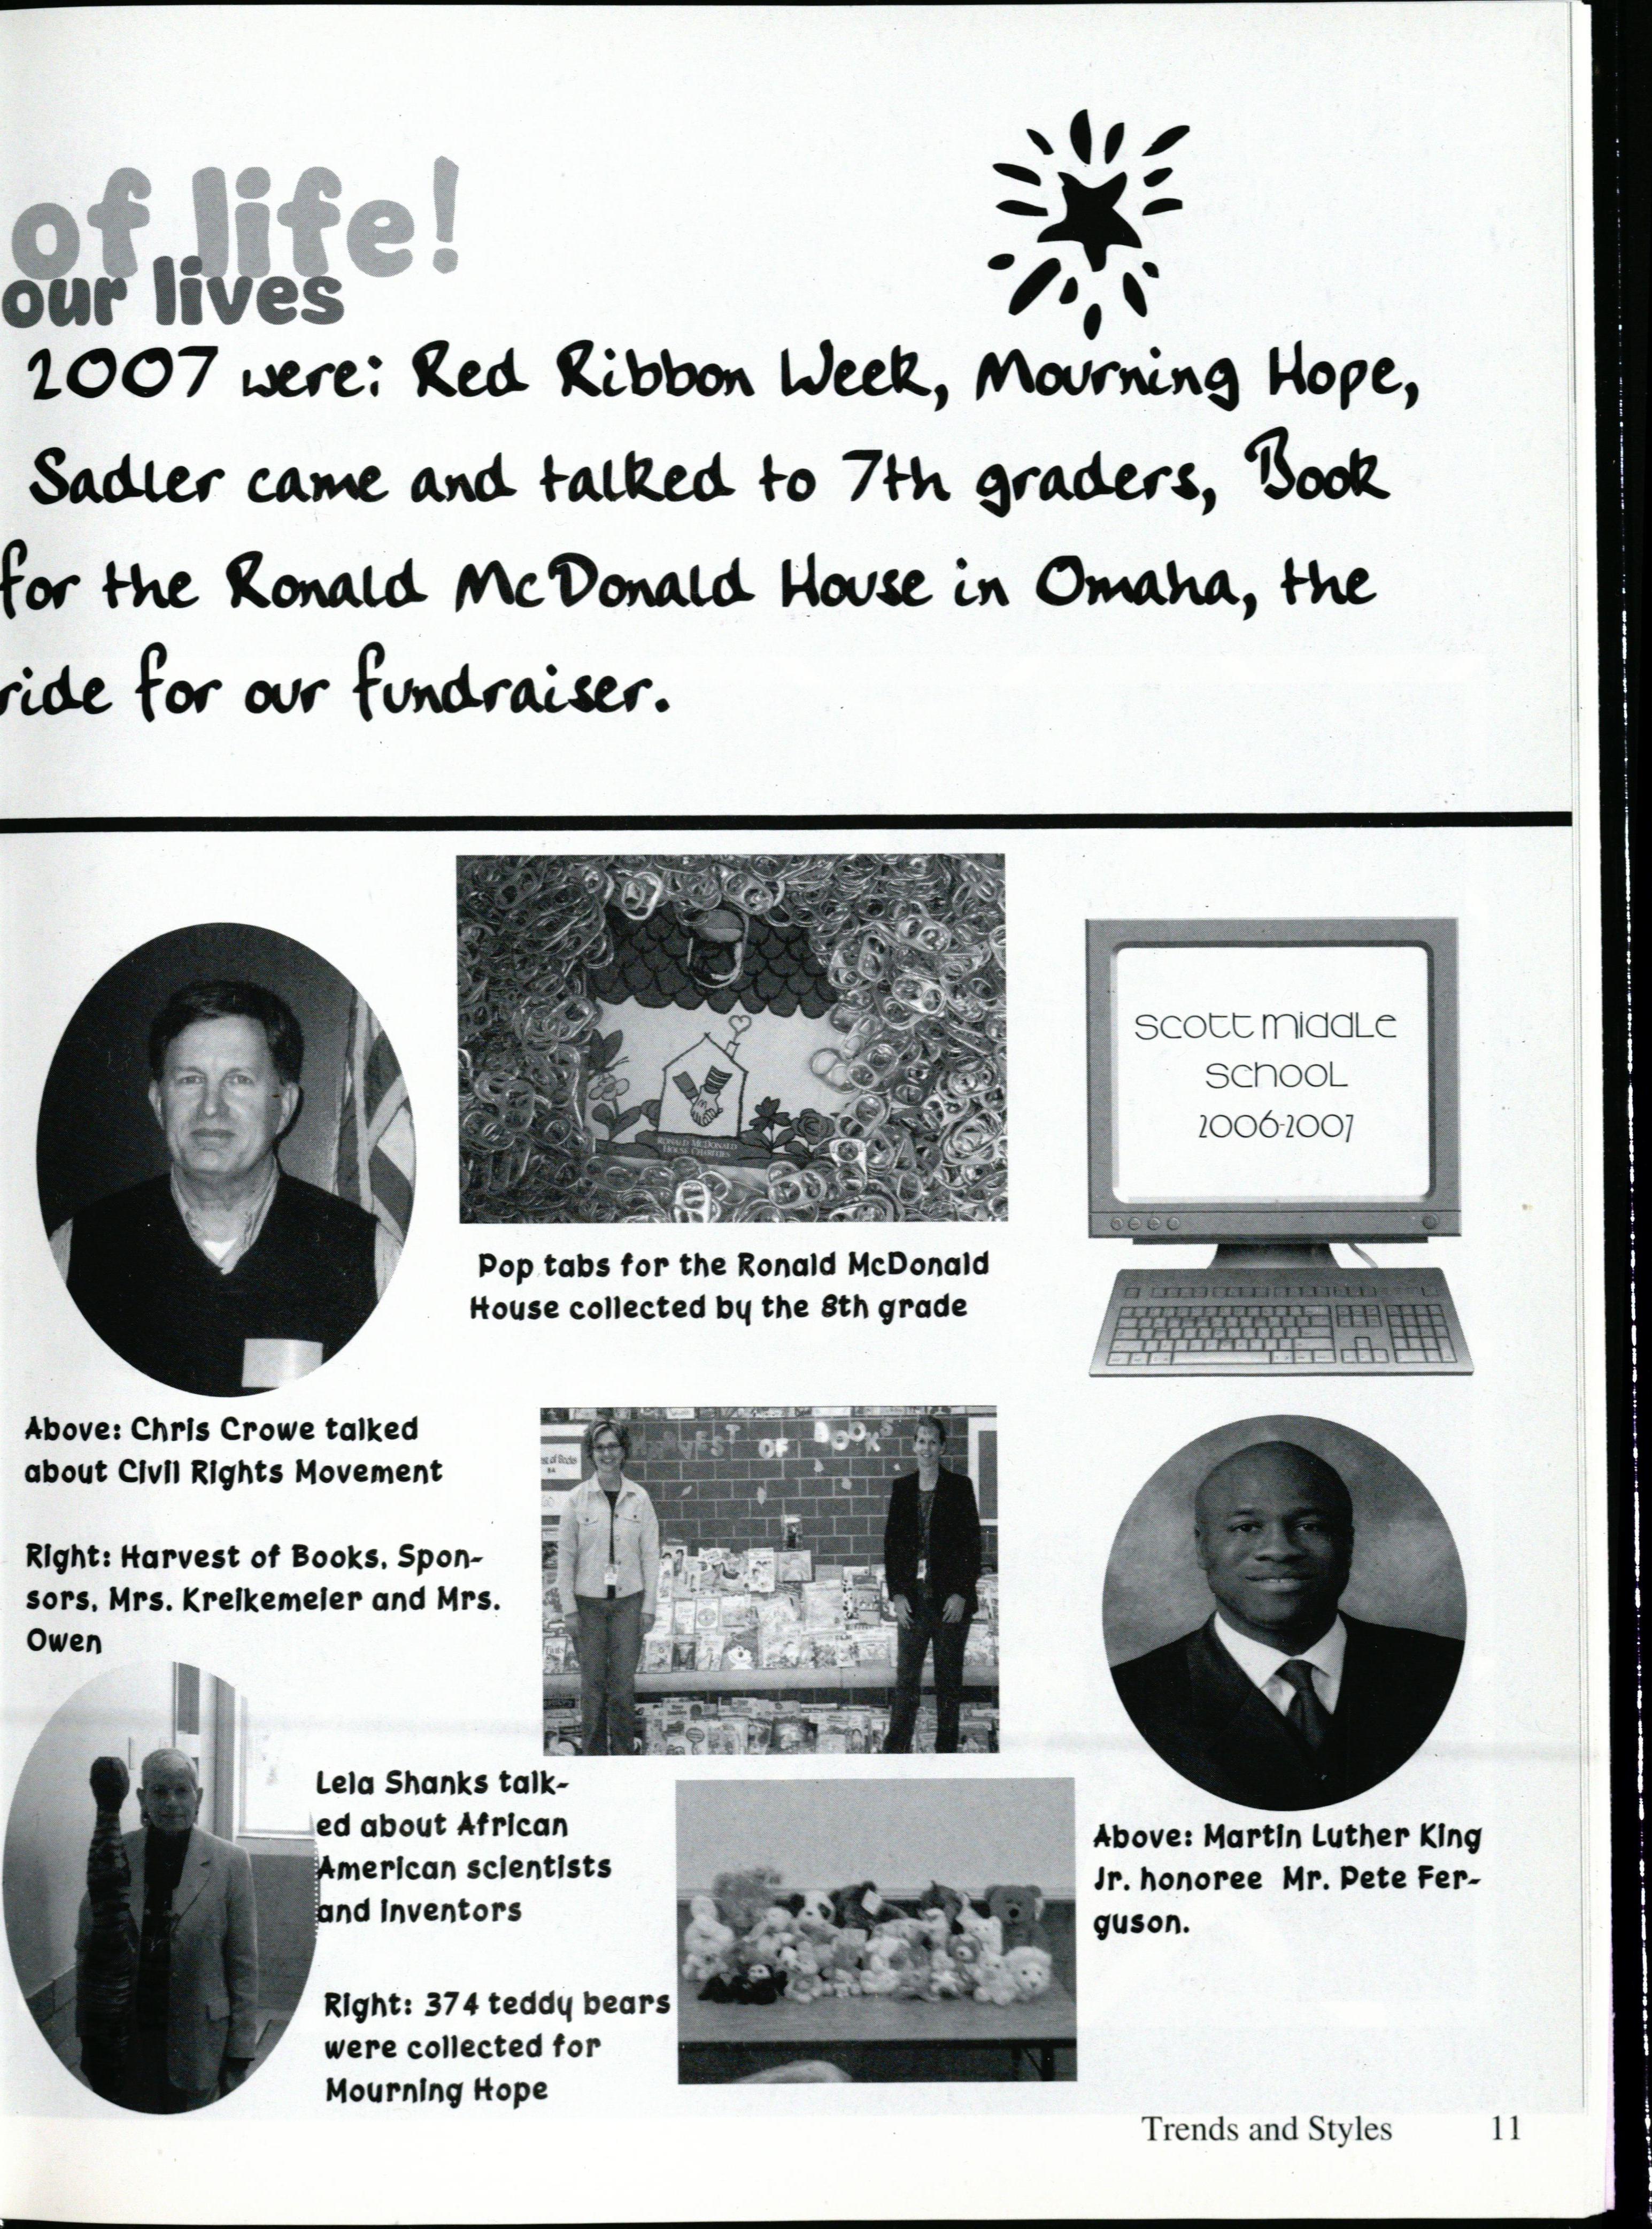 of life!
our lives
2007 were: Red Ribbon Week, Mourning Hope,
Sadler came and talked to 7th graders, Book
for the Ronald McDonald House in Omaha, the
ride for our fundraiser.
RONALD MCDONALD
HOUSE CHARITIES
Scott Middle
School
2006-2007
Pop tabs for the Ronald McDonald
House collected by the 8th grade
Above: Chris Crowe talked
about Civil Rights Movement
HARVEST OF BOOKS
Right: Harvest of Books, Spon-
sors, Mrs. Kreikemeier and Mrs.
Owen
Lela Shanks talk-
ed about African
American scientists
and inventors
Above: Martin Luther King
Jr. honoree Mr. Pete Fer-
guson.
Right: 374 teddy bears
were collected for
Mourning Hope
Trends and Styles 11